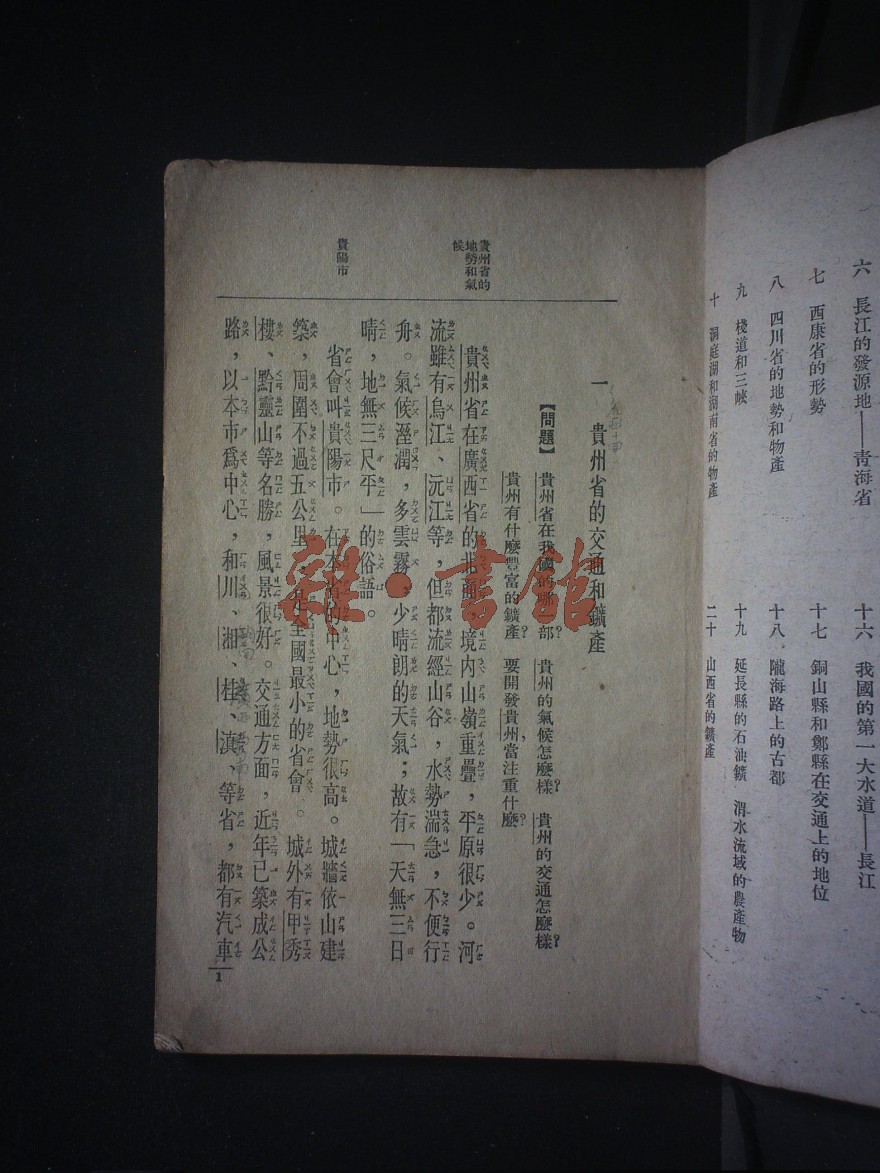 六　長江的發源地——青海省
七　西康省的形勢
八　四川省的地勢和物產
九　棧道和三峽
十　洞庭湖和湖南省的物產
十六　我國的第一大水道——長江
十七　銅山縣和鄭縣在交通上的地位
十八　隴海路上的古都
十九　延長縣的石油鑛　渭水流域的農產物
二十　山西省的鑛產
一　貴州省的交通和鑛產
【問題】　貴州省在我國的哪一部？　貴州的氣候怎麼樣？　貴州的交通怎麼樣？
貴州有什麼豐富的鑛產？　要開發貴州，當注重什麼？
貴州省的
地勢和氣
候
貴州省在廣西省的北面，境內山嶺重疊，平原很少。河
流雖有烏江、沅江等，但都流經山谷，水勢湍急，不便行
舟。氣候溼潤，多雲霧，少晴朗的天氣；故有「天無三日
晴，地無三尺平」的俗語。
貴陽市
省會叫貴陽市。在本省的中心，地勢很高。城牆依山建
築，周圍不過五公里，是全國最小的省會。城外有甲秀
樓、黔靈山等名勝，風景很好。交通方面，近年已築成公
路，以本市爲中心，和川、湘、桂、滇、等省，都有汽車
1
雜·書館